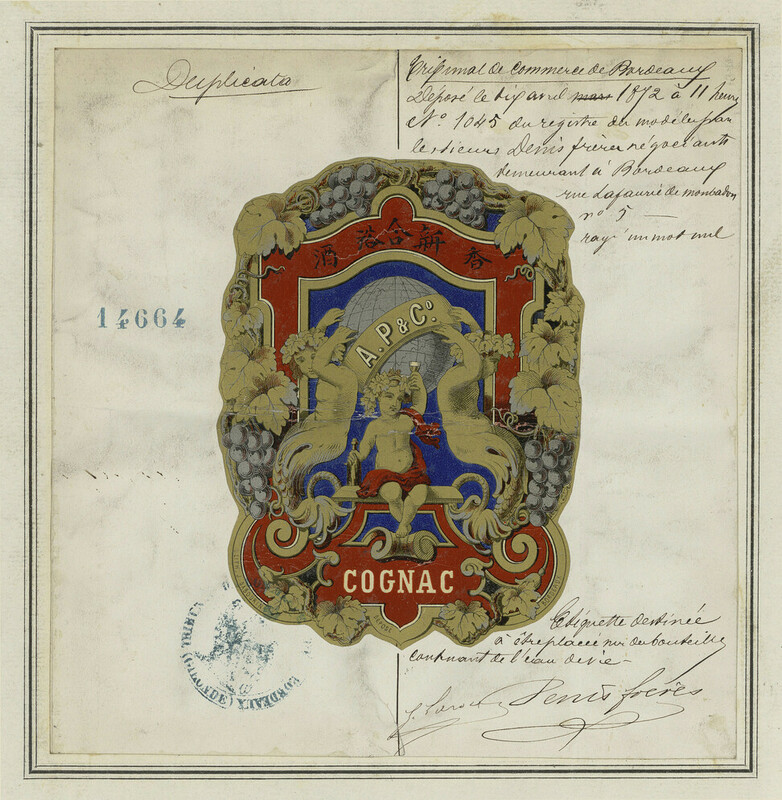 Duplicata
Tribunal de Commerce de Bordeaux
Déposé le dix avril mars 1872 à 11 heures
No. 1045 du registre du modèle par
les sieurs Denis frères négociants
demeurant à Bordeaux
rue Lafaurie de monbadon
no 5
rayé un mot nul
酒 合新香
14664
A.P & Co.
COGNAC
BORDEAUX (GIRONDE)
Etiquette destinée
à être placée sur du bouteille
contenant de l'eau de vie
Denis frères